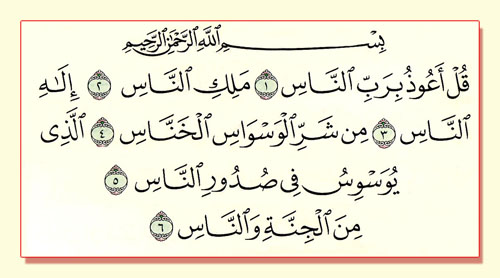 بِسْمِ ٱللَّهِ ٱلرَّحْمَٰنِ ٱلرَّحِيمِ
قُلْ أَعُوذُ بِرَبِّ ٱلنَّاسِ ١ مَلِكِ ٱلنَّاسِ ٢ إِلَٰهِ
ٱلنَّاسِ ٣ مِن شَرِّ ٱلْوَسْوَاسِ ٱلْخَنَّاسِ ٤ ٱلَّذِى
يُوَسْوِسُ فِى صُدُورِ ٱلنَّاسِ ٥
مِنَ ٱلْجِنَّةِ وَٱلنَّاسِ ٦